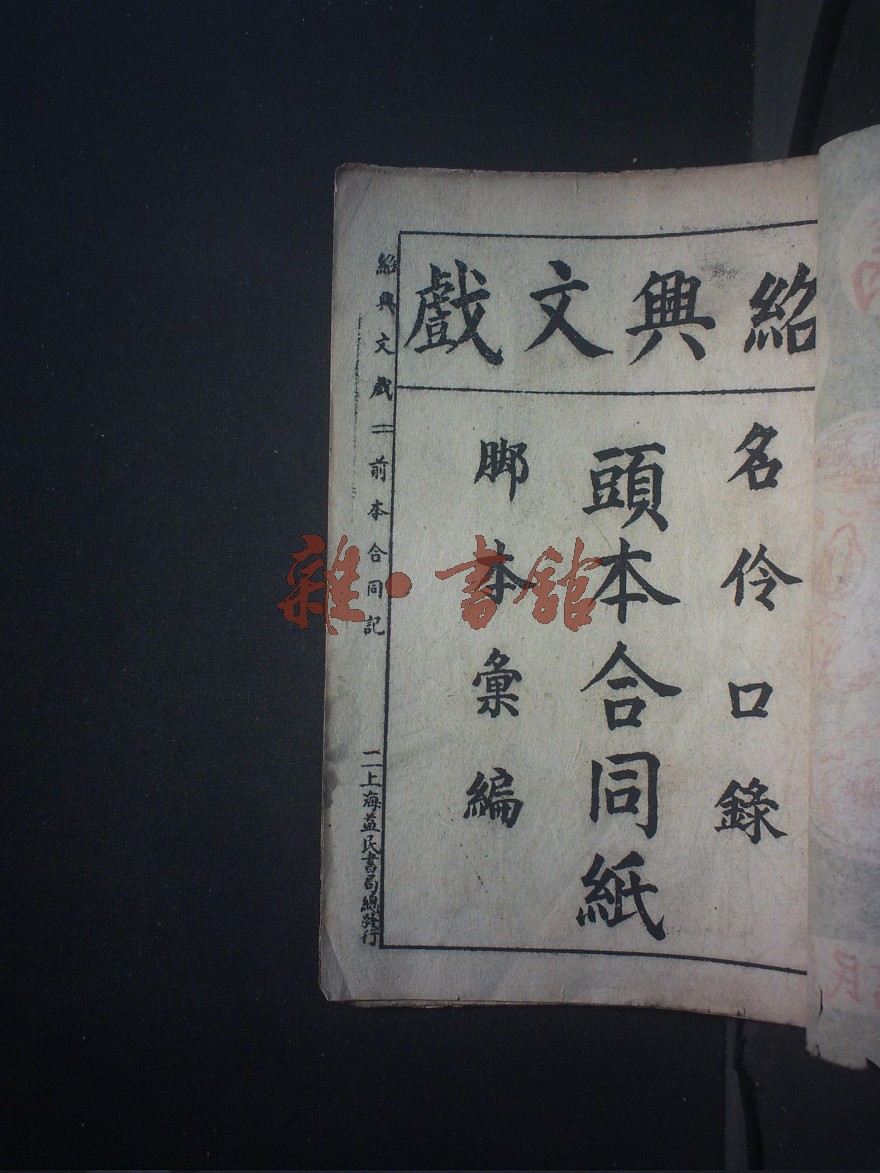 紹興文戲
名伶口錄
頭本合同紙
脚本彙編
紹興文戲 二 前本合同記 二 上海益民書局總發行
雜·書館
民